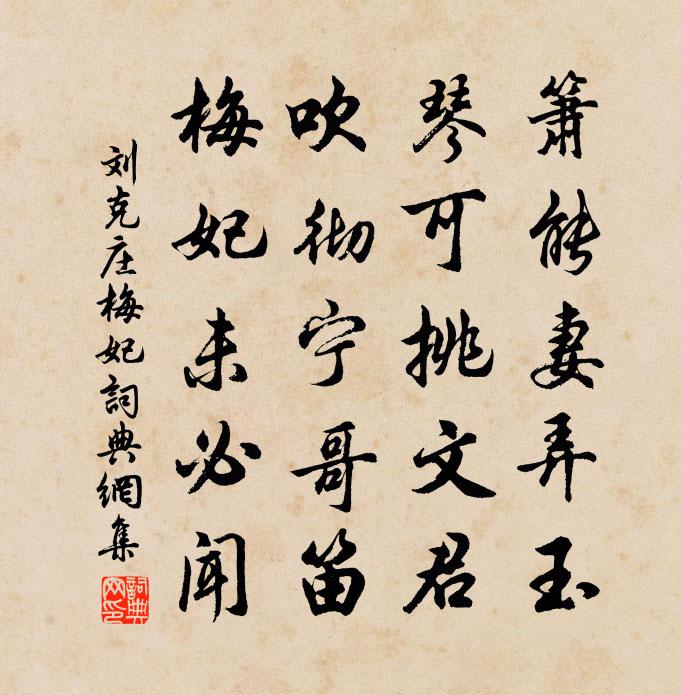 箫能妻弄玉
琴可挑文君
吹彻宁哥笛
梅妃未必闻
刘克庄梅妃詞典網集
詞典網印